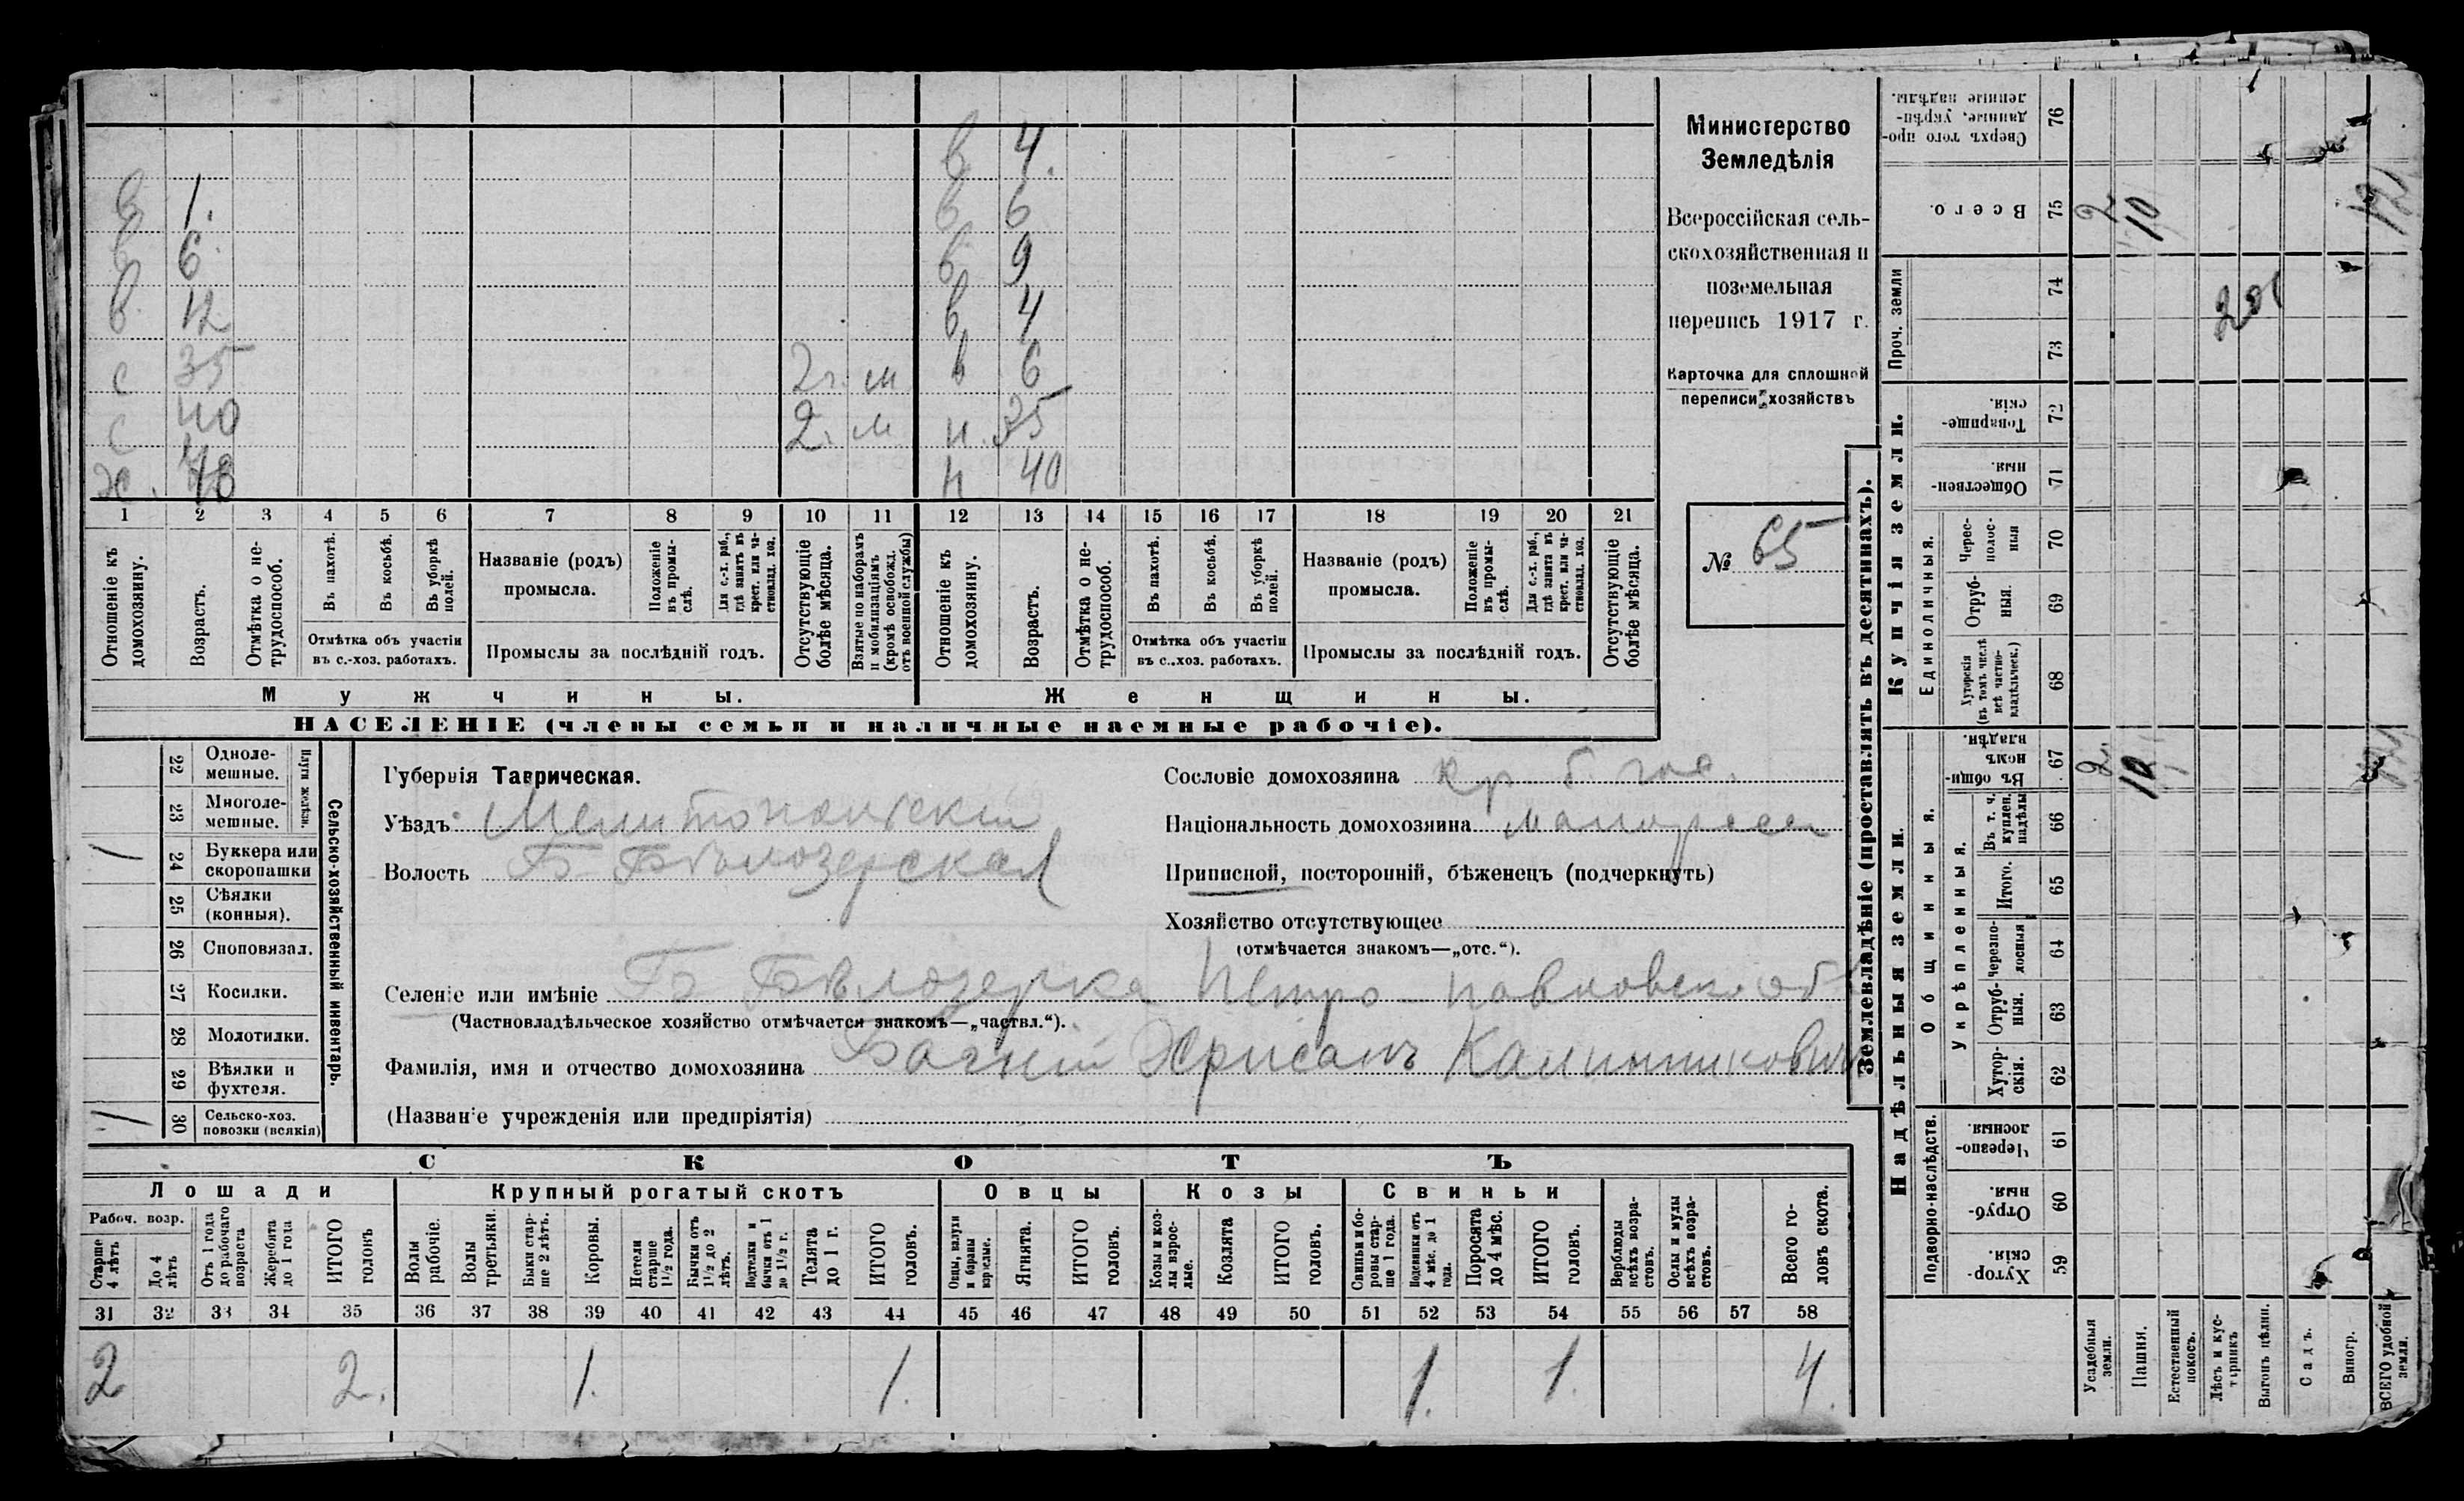 в 4.
в 1. в 6
в 6. в 9
в. 12 в 4
с 35 2 г. м в 6
с 40 2. м н. 35
х. н 40
1 2 3 4 5 6 7 8 9 10 11 12 13 14 15 16 17 18 19 20 21
Отношеніе къ домохозяину.
Возрастъ.
Отмѣтка о не-трудоспособ.
Въ пахотѣ.
Въ косьбѣ.
Въ уборкѣ полей.
Отмѣтка объ участіи въ с.-хоз. работахъ.
Названіе (родъ) промысла.
Положеніе въ промы-слѣ.
Для с.-х. раб., гдѣ занятъ въ крест. или ча-стновлад. хоз.
Промыслы за послѣдній годъ.
Отсутствующіе болѣе мѣсяца.
Взятые по наборамъ и мобилизаціямъ (кромѣ освобожд. отъ военной службы)
Отношеніе къ домохозяину.
Возрастъ.
Отмѣтка о не-трудоспособ.
Въ пахотѣ.
Въ косьбѣ.
Въ уборкѣ полей.
Отмѣтка объ участіи въ с.-хоз. работахъ.
Названіе (родъ) промысла.
Положеніе въ промы-слѣ.
Для с.-х. раб., гдѣ занята въ крест. или ча-стновлад. хоз.
Промыслы за послѣдній годъ.
Отсутствующіе болѣе мѣсяца.
Мужчины. Женщины.
НАСЕЛЕНІЕ (члены семьи и наличные наемные рабочіе).
Министерство
Земледѣлія
Всероссійская сель-
скохозяйственная и
поземельная
перепись 1917 г.
Карточка для сплошной
переписи хозяйствъ
№ 65
22 Одноле-мешные.
23 Многоле-мешные.
Плуги желѣзн.
24 Буккера или скоропашки 1
25 Сѣялки (конныя).
26 Сноповязал.
27 Косилки.
28 Молотилки.
29 Вѣялки и фухтеля.
30 Сельско-хоз. повозки (всякія) 1
Сельско-хозяйственный инвентарь.
Губернія Таврическая.
Уѣздъ Мелитопольскій
Волость Б Бѣлозерская
Сословіе домохозяина кр б. гос.
Національность домохозяина малоросс
Приписной, посторонній, бѣженецъ (подчеркнуть)
Хозяйство отсутствующее
(отмѣчается знакомъ—„отс.“).
Селеніе или имѣніе Б Бѣлозерка Петро-Павловск. об
(Частновладѣльческое хозяйство отмѣчается знакомъ—„частвл.“).
Фамилія, имя и отчество домохозяина Хрисанъ Калинниковъ
(Названіе учрежденія или предпріятія)
СКОТЪ
Лошади Крупный рогатый скотъ Овцы Козы Свиньи
Рабоч. возр.
Старше 4 лѣтъ
До 4 лѣтъ
Отъ 1 года до рабочаго возраста
Жеребята до 1 года
ИТОГО головъ
Волы рабочіе.
Волы третьяки.
Быки стар-ше 2 лѣтъ.
Коровы.
Нетели старше 1½ года.
Бычки отъ 1½ до 2 лѣтъ.
Подтелки и бычки отъ 1 до 1½ г.
Телята до 1 г.
ИТОГО головъ.
Овцы, валухи и бараны взрослые.
Ягнята.
ИТОГО головъ.
Козы и коз-лы взрос-лые.
Козлята
ИТОГО головъ.
Свиньи и бо-ровы стар-ше 1 года.
Подсвинки отъ 4 мѣс. до 1 года.
Поросята до 4 мѣс.
ИТОГО головъ.
Верблюды всѣхъ возра-стовъ.
Ослы и мулы всѣхъ возра-стовъ.
Всего го-ловъ скота.
31 32 33 34 35 36 37 38 39 40 41 42 43 44 45 46 47 48 49 50 51 52 53 54 55 56 57 58
2 2. 1. 1. 1. 1. 4.
Землевладѣніе (проставлять въ десятинахъ).
Надѣльныя земли. Купчія земли. Проч. земли
Подворно-наслѣдств.
Общинныя.
Укрѣпленныя.
Единоличныя.
76 Сверхъ того про-данные, укрѣп-ленные надѣлы.
75 Всего. 2 10
74
73
72 Товарище-скія.
71 Обществен-ныя.
70 Черес-полос-ныя
69 Отруб-ныя.
68 Хуторскія (въ томъ числѣ всѣ частно-владѣльческ.)
67 Въ общи-номъ владѣн. 2. 10
66 Въ т. ч. куплен. надѣлы
65 Итого.
64 Черезпо-лосныя
63 Отруб-ныя.
62 Хутор-скія.
61 Черезпо-лосныя.
60 Отруб-ныя.
59 Хутор-скія.
Усадебныя земли.
Пашня.
Естественный покосъ.
Лѣсъ и кус-тарникъ
Выгонъ цѣлин.
Садъ.
Виногр.
ВСЕГО удобной земли.